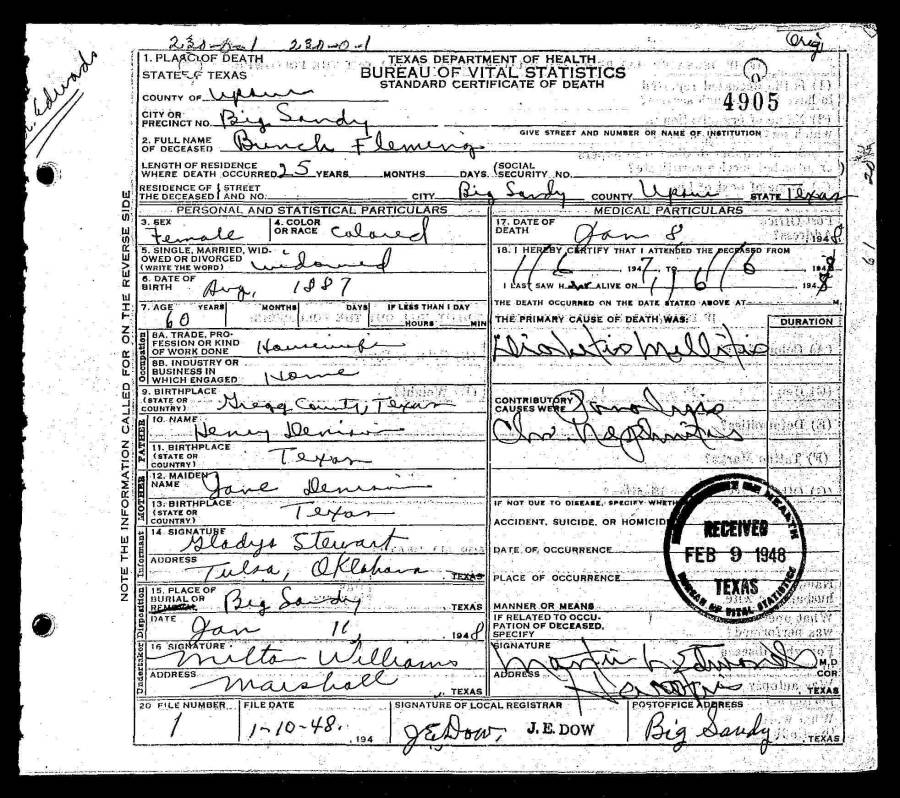 Orig.
1. PLACE OF DEATH
STATE OF TEXAS
TEXAS DEPARTMENT OF HEALTH
BUREAU OF VITAL STATISTICS
STANDARD CERTIFICATE OF DEATH
4905
COUNTY OF Upshur
CITY OR PRECINCT NO. Big Sandy
GIVE STREET AND NUMBER OR NAME OF INSTITUTION
2. FULL NAME OF DECEASED Bunch Fleming
LENGTH OF RESIDENCE WHERE DEATH OCCURRED 25 YEARS MONTHS DAYS (SOCIAL SECURITY NO.
RESIDENCE OF THE DECEASED STREET AND NO. CITY Big Sandy COUNTY Upshur STATE Texas
PERSONAL AND STATISTICAL PARTICULARS
3. SEX Female
4. COLOR OR RACE Colored
5. SINGLE, MARRIED, WIDOWED OR DIVORCED (WRITE THE WORD) Widowed
6. DATE OF BIRTH Aug, 1887
7. AGE YEARS MONTHS DAYS IF LESS THAN 1 DAY
60 HOURS MIN
Occupation
8A. TRADE, PROFESSION OR KIND OF WORK DONE Housewife
8B. INDUSTRY OR BUSINESS IN WHICH ENGAGED Home
9. BIRTHPLACE (STATE OR COUNTRY) Gregg County, Texas
FATHER
10. NAME Henry
11. BIRTHPLACE (STATE OR COUNTRY) Texas
MOTHER
12. MAIDEN NAME Jane
13. BIRTHPLACE (STATE OR COUNTRY) Texas
Informant
14. SIGNATURE Gladys Stewart
ADDRESS Tulsa, Oklahoma TEXAS
Undertaker Disposition
15. PLACE OF BURIAL OR REMOVAL Big Sandy TEXAS
DATE Jan 11, 1948
16 SIGNATURE Milton Williams
ADDRESS Marshall TEXAS
MEDICAL PARTICULARS
17. DATE OF DEATH Jan 8, 1948
18. I HEREBY CERTIFY THAT I ATTENDED THE DECEASED FROM
1947, TO 1/6 1948
I LAST SAW H ALIVE ON 1/6 1948
THE DEATH OCCURRED ON THE DATE STATED ABOVE AT M.
THE PRIMARY CAUSE OF DEATH WAS: DURATION
Diabetis Mellitis
CONTRIBUTORY CAUSES WERE Paralysis
Chr. Nephritis
IF NOT DUE TO DISEASE, SPECIFY WHETHER
ACCIDENT, SUICIDE, OR HOMICIDE
DATE OF OCCURRENCE
PLACE OF OCCURRENCE
MANNER OR MEANS
IF RELATED TO OCCUPATION OF DECEASED, SPECIFY
RECEIVED
FEB 9 1948
TEXAS
BUREAU OF VITAL STATISTICS
SIGNATURE M.D.
COR.
ADDRESS TEXAS
20 FILE NUMBER 1
FILE DATE 1-10-48. , 194
SIGNATURE OF LOCAL REGISTRAR J E Dow, J.E. DOW
POSTOFFICE ADDRESS Big Sandy TEXAS
NOTE THE INFORMATION CALLED FOR ON THE REVERSE SIDE